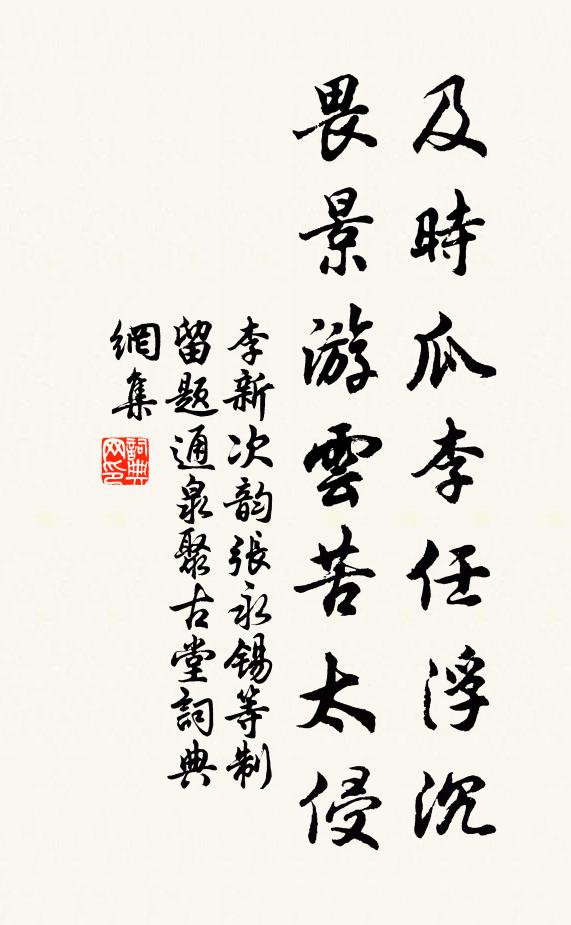 及時瓜李任浮沉
畏景游雲苦太侵
李新次韵張永錫等制
留題通泉聚古堂詞典
網集
詞典網印